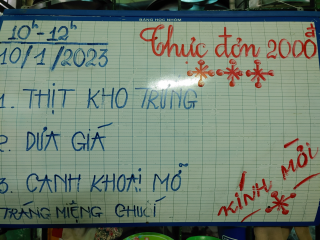 10h-12h
10/1/2023
Thực đơn 2000đ
1. THỊT KHO TRỨNG
2. DƯA GIÁ
3. CANH KHOAI MỠ
TRÁNG MIỆNG CHUỐI
KÍNH MỜI